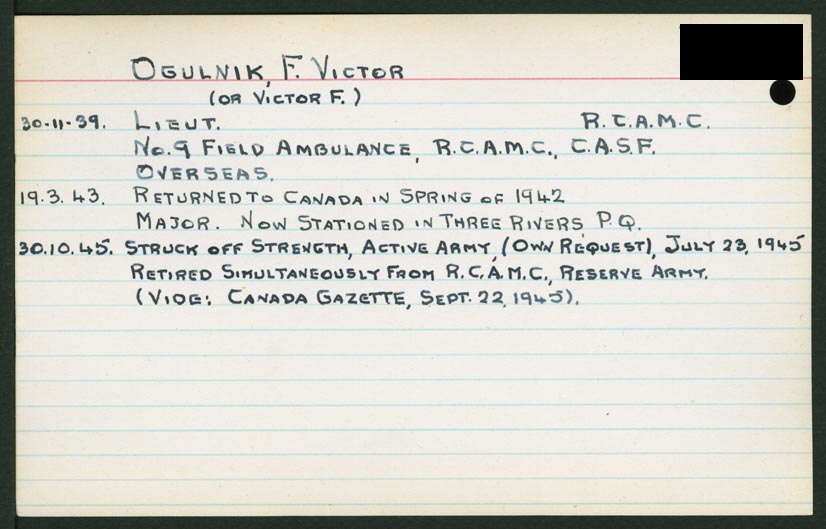 OGULNIK, F. VICTOR
(OR VICTOR F.)
30-11-39. LIEUT. R.C.A.M.C.
No.9 FIELD AMBULANCE, R.C.A.M.C., C.A.S.F.
OVERSEAS.
19.3.43. RETURNED TO CANADA IN SPRING OF 1942
MAJOR. NOW STATIONED IN THREE RIVERS, P.Q.
30.10.45. STRUCK OFF STRENGTH, ACTIVE ARMY, (OWN REQUEST), JULY 23, 1945
RETIRED SIMULTANEOUSLY FROM R.C.A.M.C., RESERVE ARMY.
(VIDE: CANADA GAZETTE, SEPT. 22, 1945).